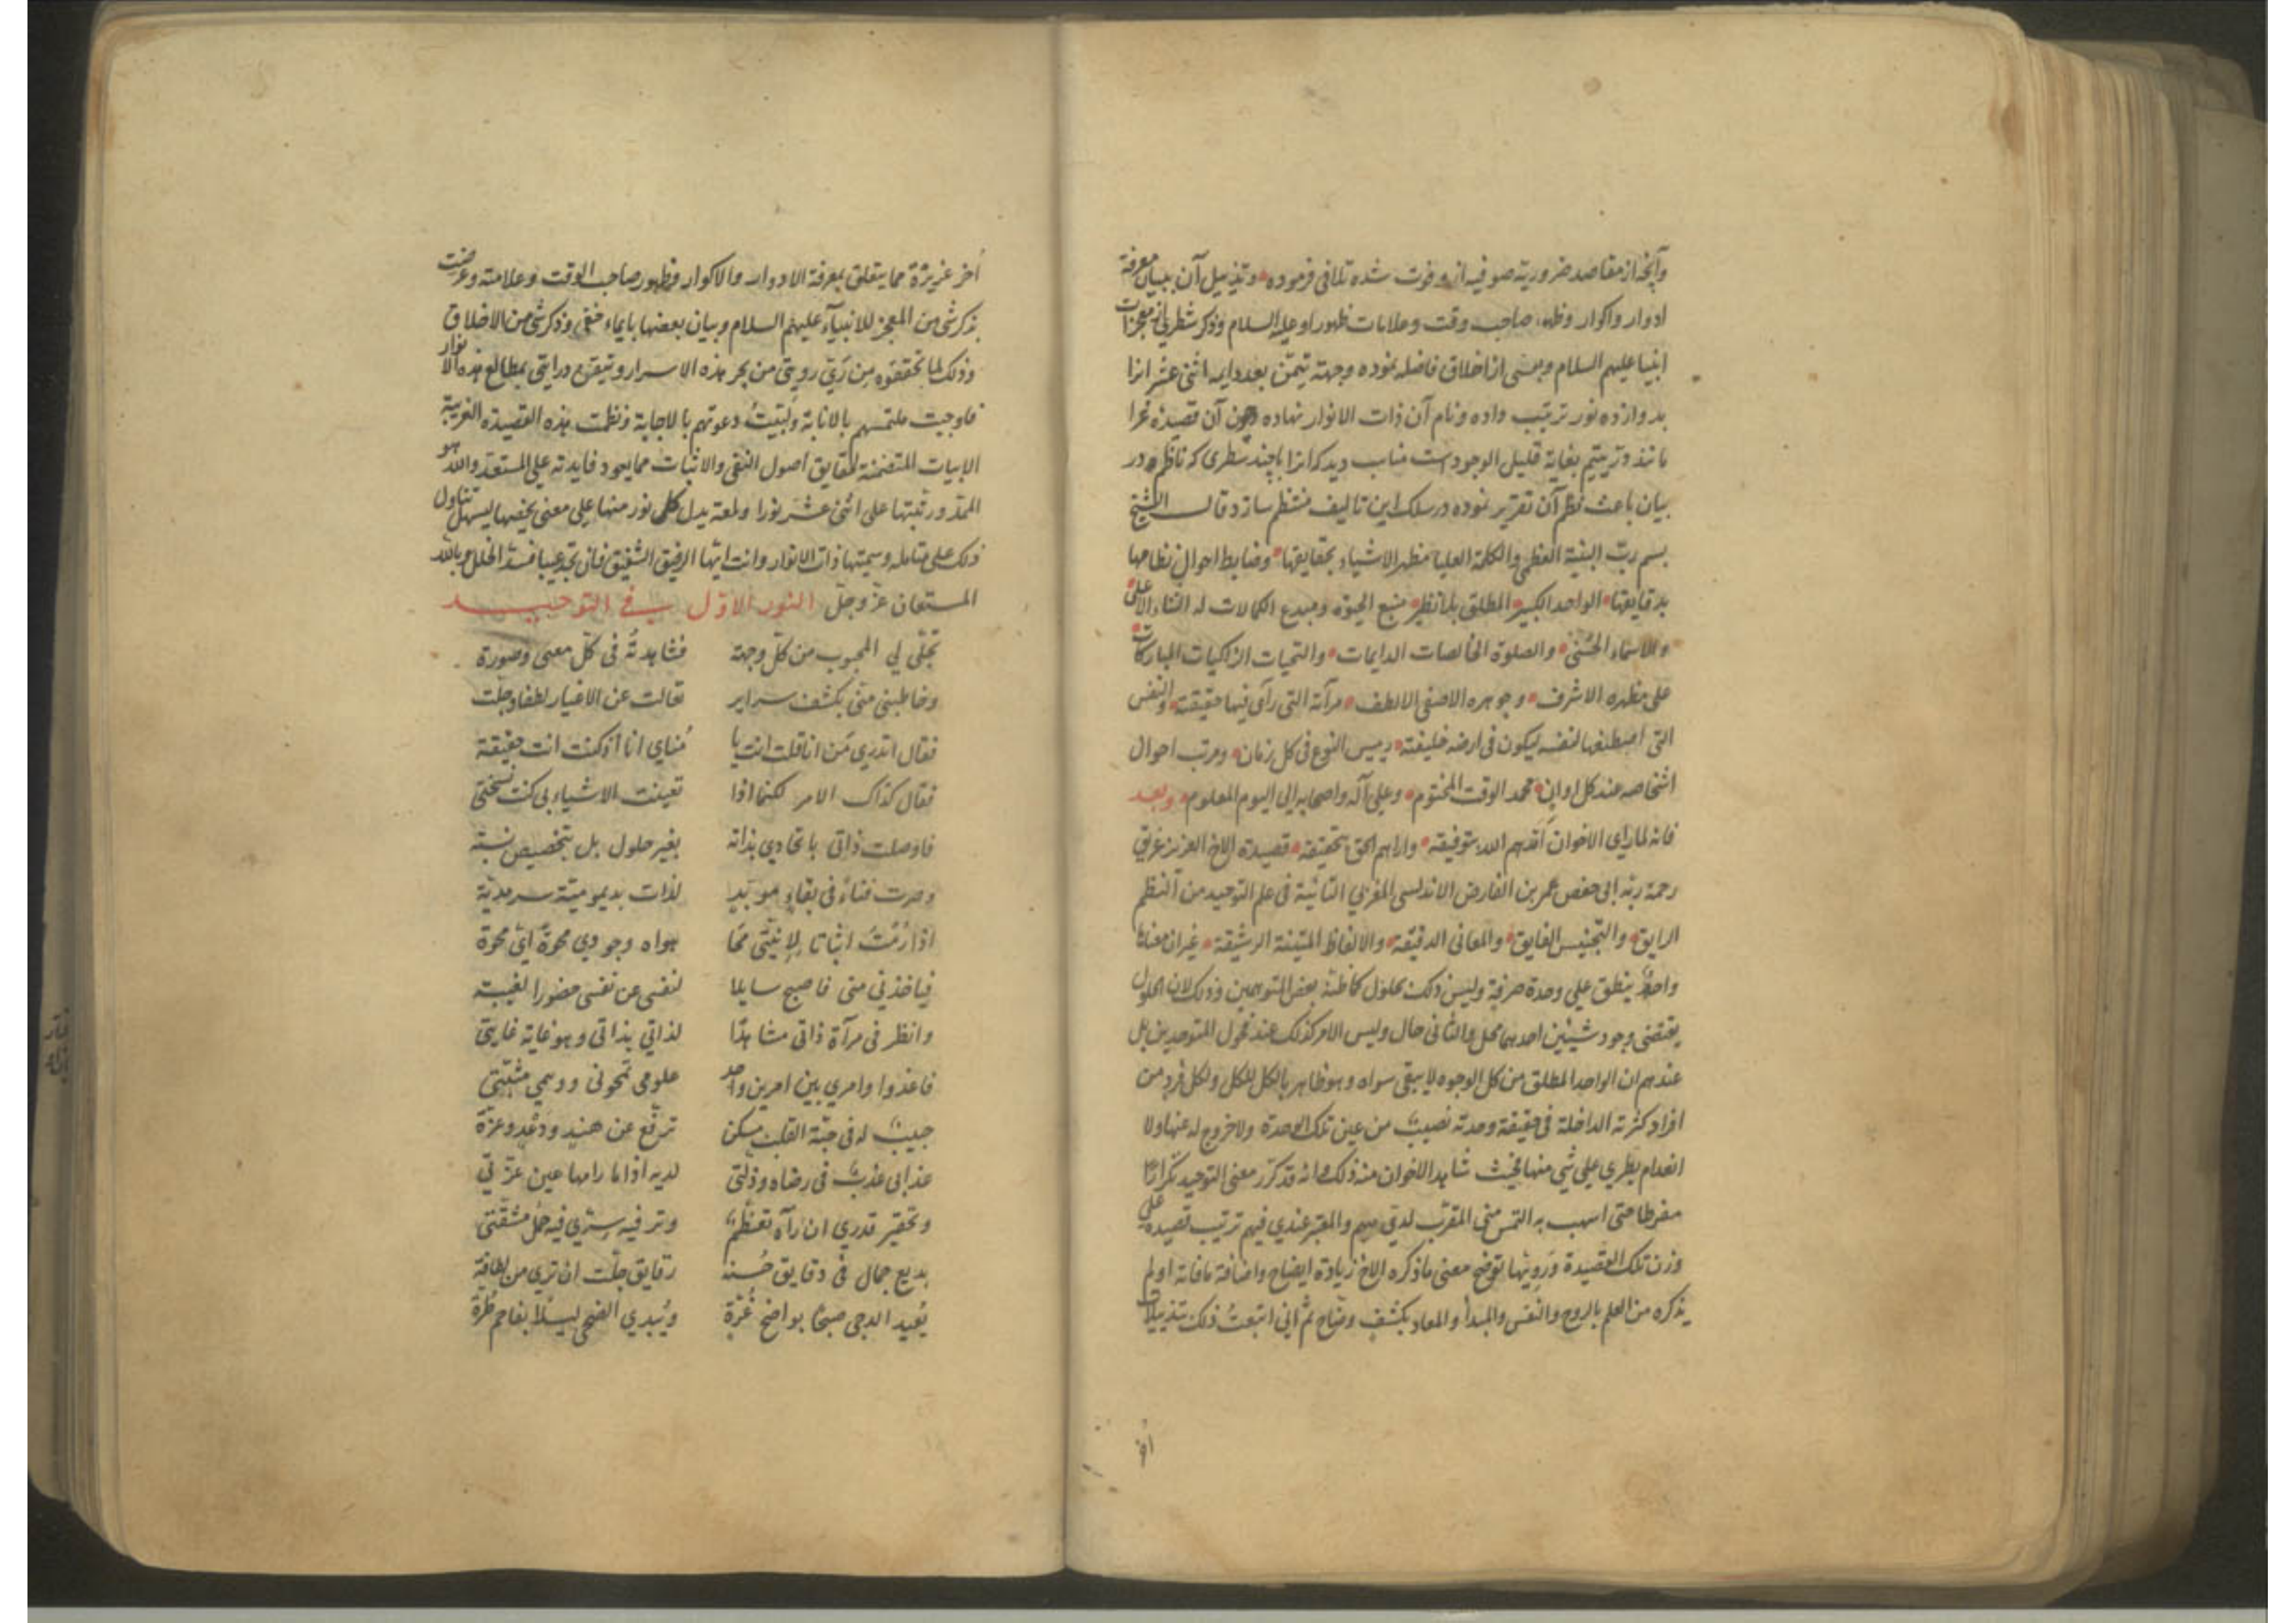 وآنچه از مقاصد ضروریه صوفیه ازو فوت شده تلافی فرموده وتذییل آن ببیان معرفة
ادوار واکوار وظهور صاحب وقت وعلامات ظهور او علیه السلام وذکر شطری از معجزات
انبیا علیهم السلام وبعضی از اخلاق فاضله نموده وجهة تیمّن بعدد ایمه اثنی عشر انرا
بدوازده نور ترتیب داده ونام آن ذات الانوار نهاده چون آن قصیده غرا
مانند درّ یتیم بغایة قلیل الوجود است مناسب دید که انرا با چند سطری که ناظم در
بیان باعث نظم آن تقریر نموده در سلک این تالیف منتظم سازد قال الشیخ
بسم ربّ البنیة العظمی والکلمة العلیا مظهر الاشیاء بحقایقها وضابط احوال نظامها
بدقایقها الواحد الکبیر المطلق بلا نظیر منبع الحیوة ومبدع الکمالات له الثناء الاعلی
والاسماء الحسنی والصلوة الخالصات الدایمات والتحیات الزاکیات المبارکات
علی مظهره الاشرف وجوهره الاصفی الالطف مرآته التی رآی فیها حقیقته والنفس
التی اصطنعها لنفسه لیکون فی ارضه خلیفته رییس النوع فی کل زمان ومرتب احوال
اشخاصه عند کل اوان محمد الوقت المختوم وعلی آله واصحابه الی الیوم المعلوم وبعد
فانه لما رای الاخوان ایّدهم الله بتوفیقه واراهم الحق بتحقیقه قصیدة الاخ العزیز غریق
رحمة ربّه ابی حفص عمر بن الفارض الاندلسی المغربی التائیة فی علم التوحید من النظم
الرایق والتجنیس الفایق والمعانی الدقیقة والالفاظ المتینة الرشیقة غیر ان معناها
واحدٌ ینطق علی وحدة صرفة ولیس ذلک بحلول کما ظنّه بعض المتوهمین وذلک لان الحلول
یقتضی وجود شیئین احدهما محل والثانی حال ولیس الامر کذلک عند فحول المتوحدین بل
عندهم ان الواحد المطلق من کل الوجوه لا یبقی سواه وهو ظاهر بالکل للکل ولکل فرد من
افراد کثرته الداخلة فی حقیقة وحدته نصیبٌ من عین تلک الوحدة ولا خروج له عنها ولا
انعدام یطری علی شی منها فحیث شاهد الاخوان منه ذلک انه قد کرّر معنی التوحید تکرارًا
مفرطا حتی اسهب به التمس منی المقرّب لدیّ منهم والمعتبر عندی فیهم ترتیب قصیدة علی
وزن تلک القصیدة ورَوِیّها توضح معنی ما ذکره الاخ زیادة ایضاح واضافة ما فاته او لم
یذکره من العلم بالروح والنفس والمبدأ والمعاد بکشف وضاح ثم انی اتبعتُ ذلک بتذییلات
اخر
أخر عزیزة مما یتعلق بمعرفة الادوار والاکوار وظهور صاحب الوقت وعلامته وعرضت
بذکر شی من المعجز للانبیآء علیهم السلام وبیان بعضها بایماء خفی وذکر شی من الاخلاق
وذلک لما تحققوه من رَیّ رویتی من بحر هذه الاسرار وتیقن درایتی بمطالع هذه الانوار
فاوجبت ملتمسهم بالانابة ولبّیتُ دعوتهم بالاجابة ونظمت هذه القصیدة الغریبة
الابیات المتضمنة لحقایق اصول النفی والاثبات مما یعود فایدته علی المستعد والله هو
الممدّ ورتبتها علی اثنی عشر نورا ولمعة یدل کل نور منها علی معنی یخصها لیسهل تناول
ذلک علی متامله وسمیتها ذات الانوار وانت ایّها الرفیق الشفیق فان تجد عیبا فسدّ الخلل وبالله
المستعان عزّ وجلّ النور الاوّل فی التوحید
تجلّی لی المحبوب من کل وجهة فشاهدتُه فی کلّ معنی وصورة
وخاطبنی منّی بکشف سرایر تعالت عن الاغیار لطفا وجلّت
فقال اتدری مَن انا قلت انت یا مُنای انا اذ کنت انت حقیقة
فقال کذاک الامر لکنما اذا تعینت الاشیاء بی کنت نسختی
فاوصلت ذاتی باتحادی بذاته بغیر حلول بل بتخصیص نسبة
وصرت فناءً فی بقاءٍ موبّدٍ لذات بدیمومیّة سرمدیّة
اذا رُمْتُ اثباتا لِانیّتی مَحَا هواه وجودی محوةً ایّ محوة
فیاخذنی منی فاصبح سایلا لنفسی عن نفسی حضورا لغیبة
وانظر فی مرآة ذاتی مشاهدًا لذاتی بذاتی وهو غایة غایتی
فاغدوا وامری بین امرین واحد علومی تمحونی ووهمی مثبّتی
حبیبٌ له فی حبّة القلب مسکن ترفّع عن هندٍ ودَعْدٍ وعزّة
عذابی عذبٌ فی رضاه وذلّتی لدیه اذا ما رامها عین عزّتی
وتحقیر قدری ان رآه تعظّمٌ وترفیه سرّی فیه حمل مشقّتی
بدیع جمال فی دقایق حُسنه رقایق جلّت ان تری من لطافة
یُعید الدجی صبحًا بواضح غُرّة ویُبدی الضحی لیلا بفاحم طُرّة